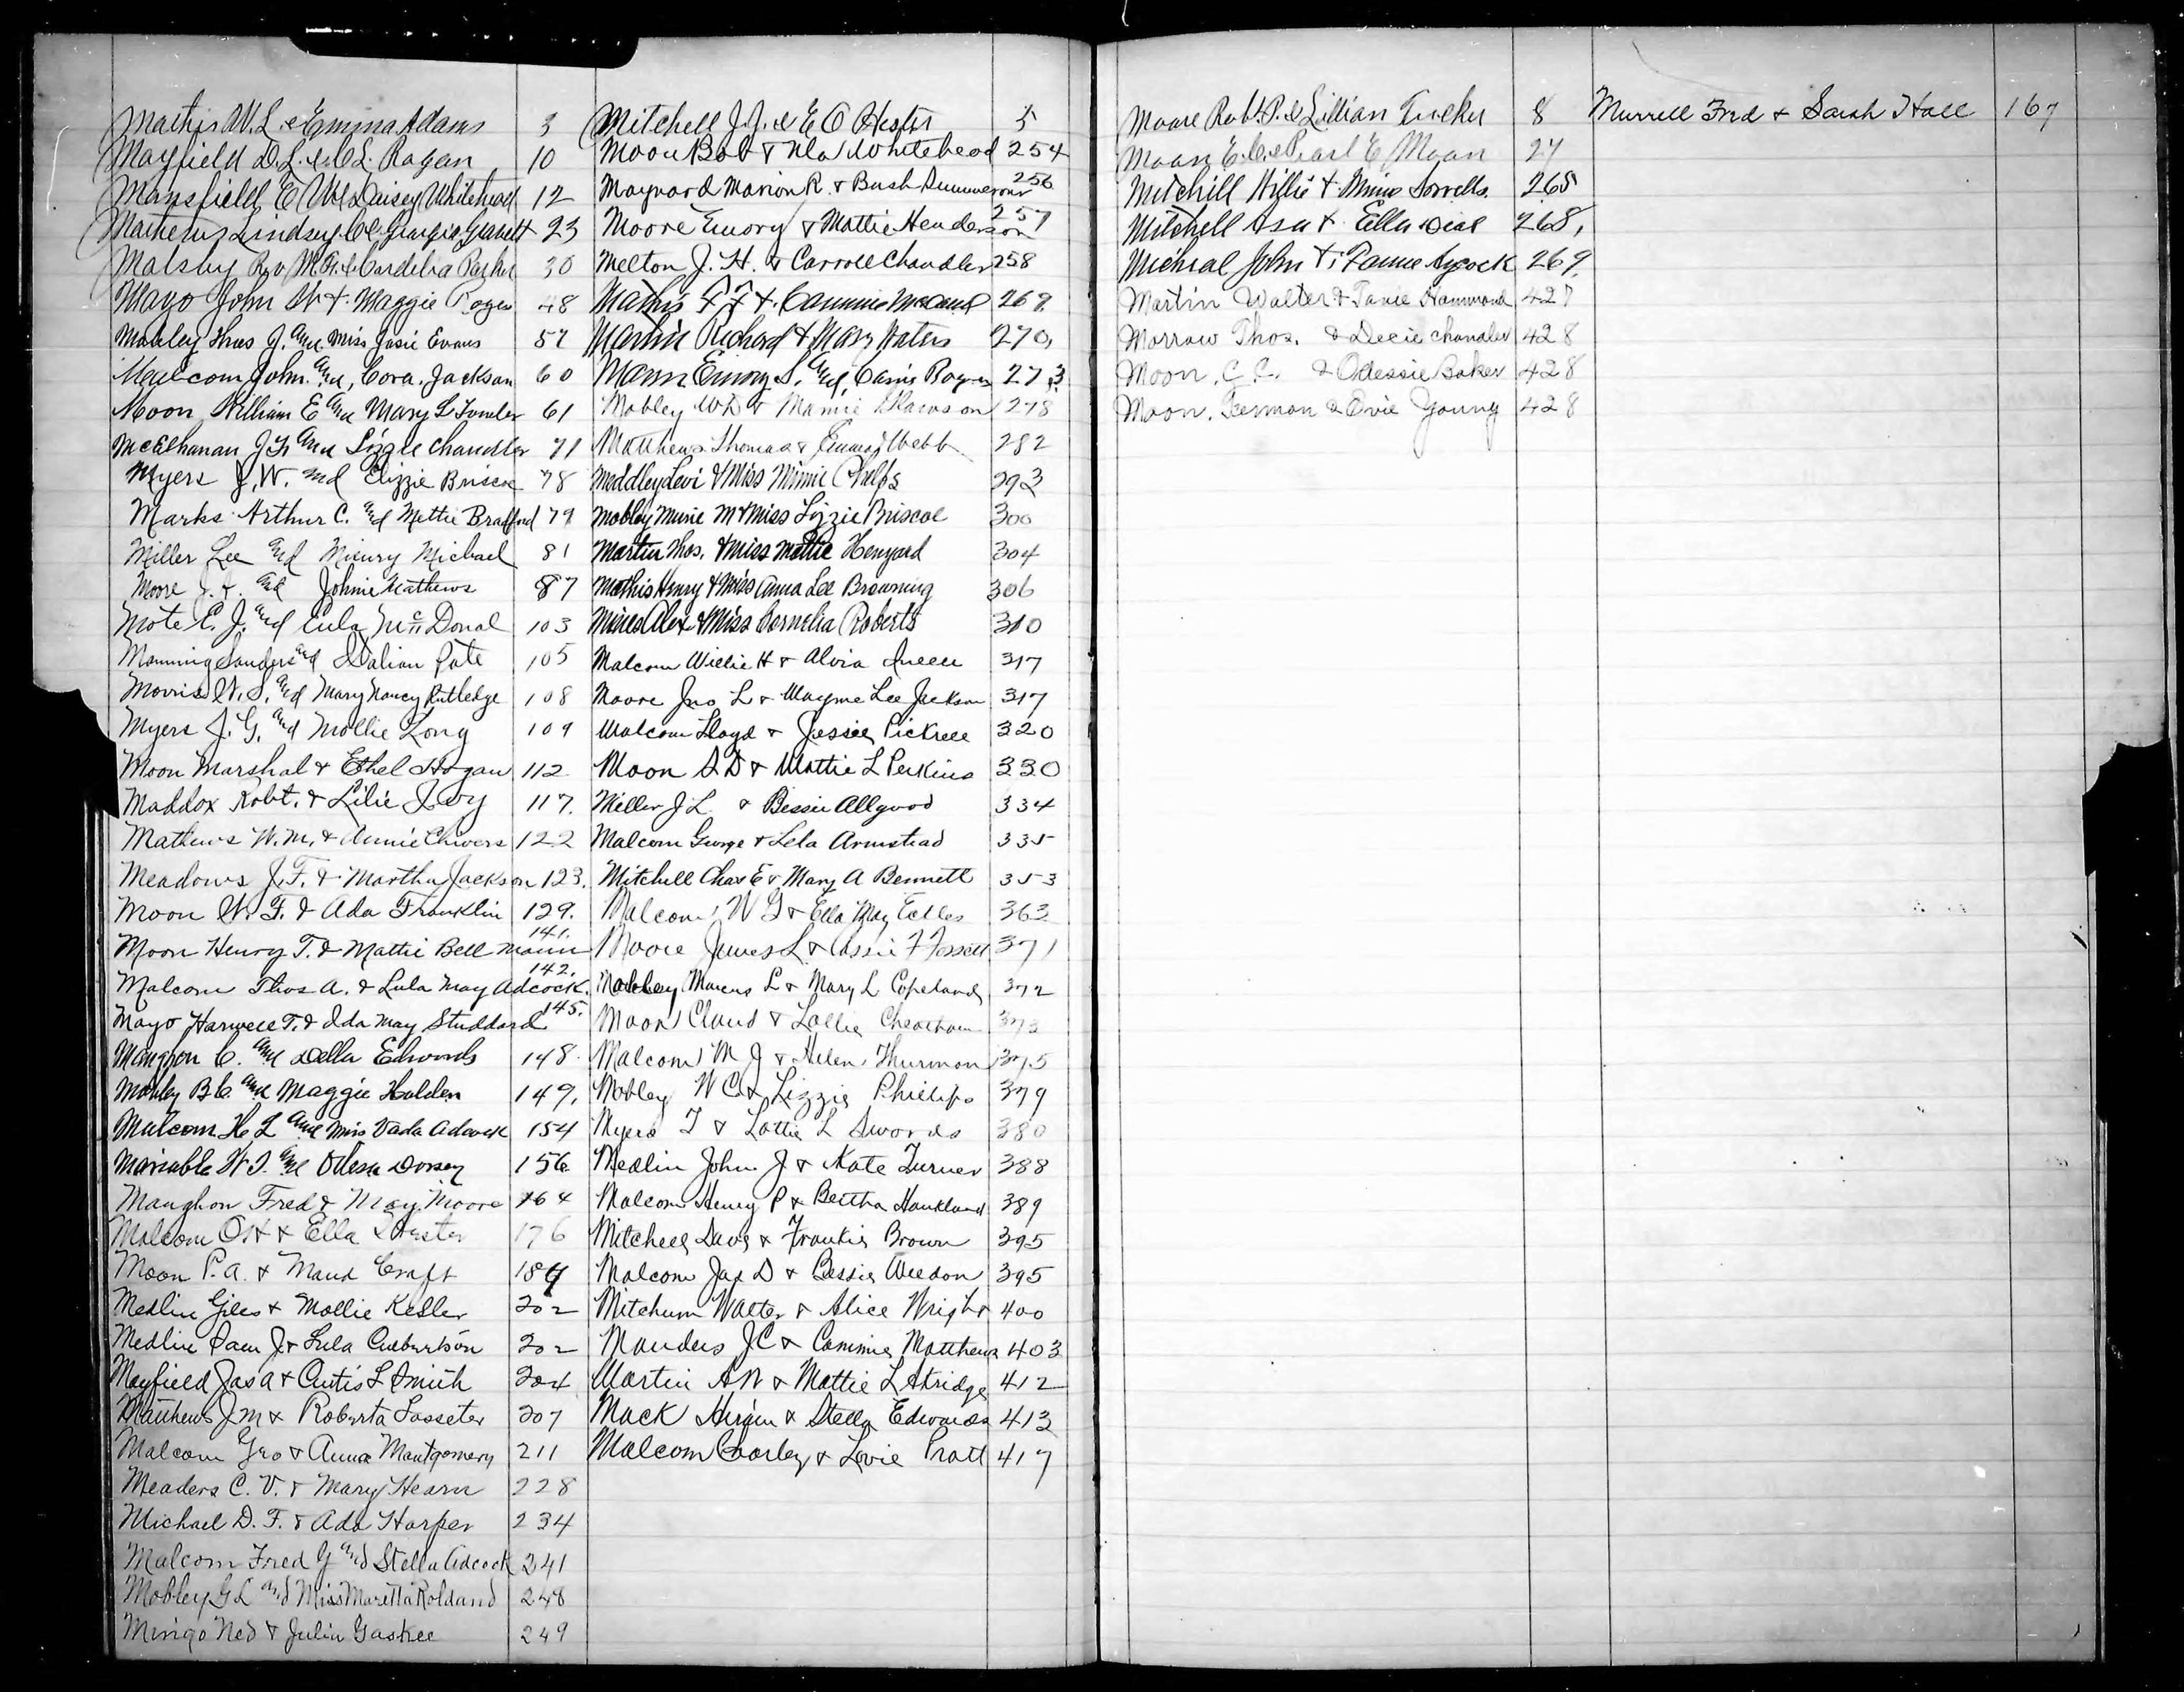 Mathis W. L. & Emma Adams 3
Mayfield D. L. & C. L. Ragan 10
Mansfield E W & Daisey Whitehead 12
Mathews Lindsey C & Georgia Garrett 23
Malsby Rev M. & Cordelia Parker 30
Mayo John W & Maggie Roger 48
Mobley Thos J. and Miss Josie Evans 57
Malcom John. and, Cora, Jackson 60
Moon William E and Mary L Fowler 61
McElhanan J H and Lizzie Chandler 71
Myers J. W. and Lizzie Briscoe 78
Marks Arthur C. and Mettie Bradford 79
Miller Lee and Michael 81
Moore J. and Johnie Mathews 87
Mote E. J. and Eula McDonal 103
Manning Sanders and Dalian Pate 105
Morris W. S. and Mary Nancy Rutledge 108
Myers J. G. and Mollie Long 109
Moon Marshal & Ethel Hogan 112
Maddox Robt. & Lilie Ivey 117.
Mathews W. M. & Annie Chivers 122
Meadows J. F. & Martha Jackson 123.
Moon W. F. & Ada Franklin 129.
Moon Henry T. & Mattie Bell Mann 141.
Malcom Thos A. & Lula May Adcock. 142.
Mayo Harwell T. & Ida May Studdard 145.
Maughon C. and Della Edwards 148.
Mobley B C. and Maggie Holden 149.
Malcom H L and Miss Vada Adcock 154
W. T. and Odessa Dorsey 156
Maughon Fred & May Moore 164
Malcom O H & Ella Hester 176
Moon P. A. & Maud Craft 184
Medlin Giles & Mollie Kesler 202
Medlin Sam J & Lula Culbertson 202
Mayfield Jas A & Curtis L Smith 204
Matthews J M & Roberta Lasseter 207
Malcom Geo & Anna Montgomery 211
Meaders C. V. & Mary Hearn 228
Michael D. F. & Ada Harper 234
Malcom Fred G and Stella Adcock 241
Mobley G L and Miss Maretta Roland 248
Mingo Ned & Julia Gaskee 249
Mitchell J. J. & E O Hester 5
Moon Bob & Ula Whitehead 254
Maynard Marion R. & Bush Summerour 256
Moore Emory & Mattie Henderson 257
Melton J. H. & Carroll Chandler 258
Mathis F F & Cammie 269
Martin Richard & Mary Waters 270,
Mann Emory S. and, Rogers 273
Mobley W D & Mamie Dawson 278
Matthews Thomas & Emma J Webb 282
Meddley Levi & Miss Minnie Phelps 293
Mobley Murie M & Miss Lizzie Briscoe 300
Martin Thos. & Miss Mettie Henyard 304
Mathis Henry & Miss Anna Lee Browning 306
Mines Alex & Miss Cornelia Roberts 310
Malcom Willie H & Alvia Queen 317
Moore Jno L & Mayme Lee Jackson 317
Malcom Lloyd & Jessie Pickrell 320
Moon S D & Mattie L Perkins 330
Miller J L. & Bessie Allgood 334
Malcom George & Lela Armstead 335
Mitchell Chas E & Mary A Bennett 353
Malcom W G & Ella May Eckles 363
Moore James L & Cassie F 371
Mobley Marcus L & Mary L Copeland 372
Moon Claud & Lollie Cheatham 373
Malcom M J & Helen Thurmon 375
Mobley W C & Lizzie Phillips 379
Myers T & Lottie L Swords 380
Medlin John J & Kate Turner 388
Malcom Henry P & Bertha Hankland 389
Mitchell Dave & Frankie Brown 395
Malcom Jas D & Bessie Weedon 395
Mitchum Walter & Alice Wright 400
Manders J C & Cammie Matthews 403
Martin A W & Mattie L Ethridge 412
Mack Hiram & Stella Edwards 413
Malcom Charley & Lovie Pratt 417
Moore Robt. P. & Lillian Tucker 8
Moon E. C. & Pearl E Moon 27
Mitchill Willie & Minie Sorrells. 265
Mitchell Asa & Ella Dial 268,
Micheal John & Fannie Aycock 269,
Martin Walter & Janie Hammond 427
Morrow Thos. & Decie Chandler 428
Moon, C. C. & Odessie Baker 428
Moon, Fermon & Ovie Young 428
Murrell Fred & Sarah Hall 167